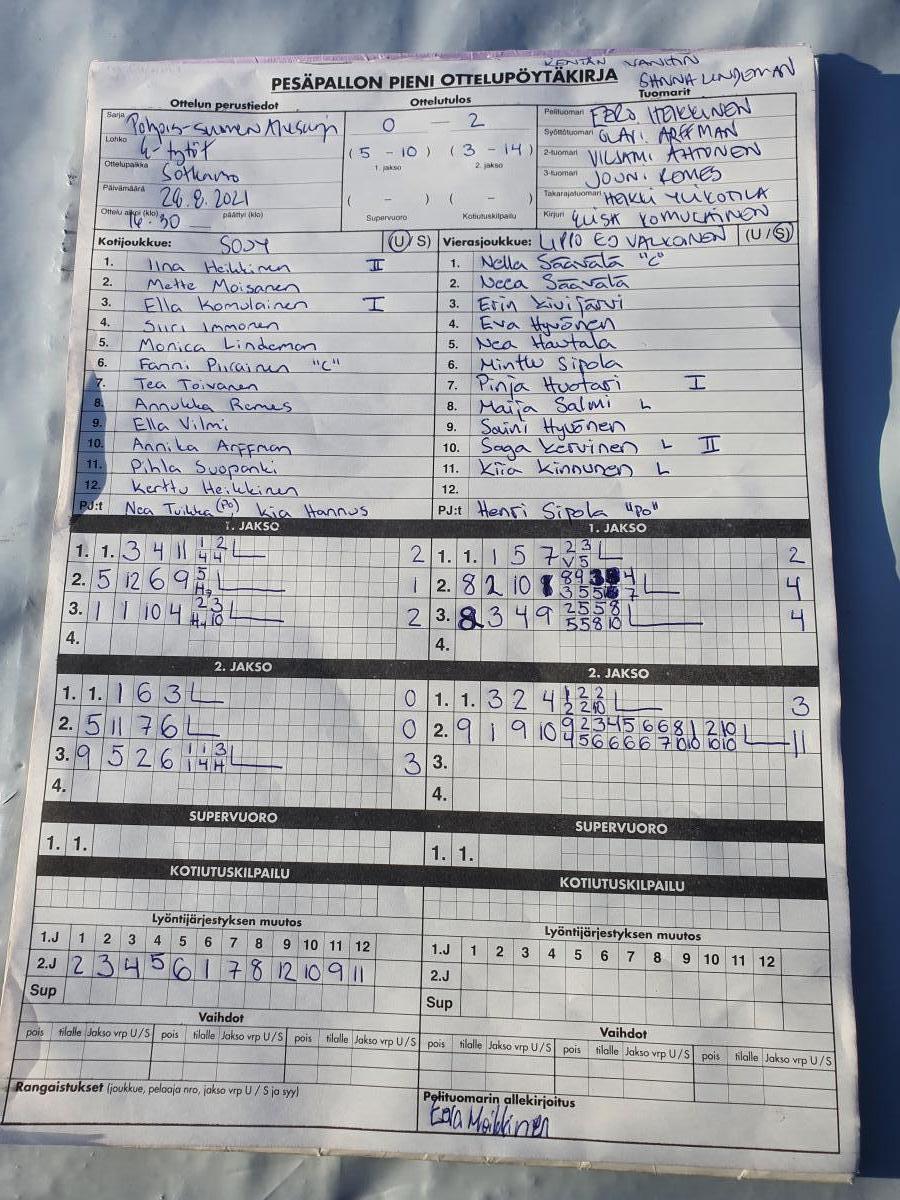 KENTÄN VANHIN
SANNA LINDEMAN
PESÄPALLON PIENI OTTELUPÖYTÄKIRJA
Ottelun perustiedot
Sarja Pohjois-Suomen Alue
Lohko G-tytöt
Ottelupaikka Sotkamo
Päivämäärä 26.8.2021
Ottelu alkoi (klo) 16.30 päättyi (klo)
Ottelutulos
0 — 2
(5 - 10) (3 - 14)
1. jakso 2. jakso
( - ) ( - )
Supervuoro Kotiutuskilpailu
Tuomarit
Pelituomari EERO HEIKKINEN
Syöttötuomari OLAVI ARFFMAN
2-tuomari VILJAMI AHTONEN
3-tuomari JOUNI ROMES
Takarajatuomari HEIKKI YLIKOTILA
Kirjuri LIISA KOMULAINEN
Kotijoukkue: SOJY (U/S)
1. Iina Heikkinen II
2. Mette Moisanen
3. Ella Komulainen I
4. Siiri Immonen
5. Monica Lindeman
6. Fanni Piirainen "C"
7. Tea Toivanen
8. Annukka Romes
9. Ella Vilmi
10. Annika Arffman
11. Pihla Suopanki
12. Kerttu Heikkinen
PJ:t Nea Tuikka (Po) Kia Hannus
Vierasjoukkue: LIPIO EJ VALKOINEN (U/S)
1. Nella Säävälä "C"
2. Neea Säävälä
3. Erin Kivijärvi
4. Eva Hyvönen
5. Nea Hautala
6. Minttu Sipola
7. Pinja Huotari I
8. Maija Salmi L
9. Saini Hyvönen
10. Saga Kervinen L II
11. Kiia Kinnunen L
12.
PJ:t Henri Sipola "Po"
1. JAKSO
1. 1. 3 4 11 1 2 2
4 4
2. 5 12 6 9 5 1
3. 1 1 10 4 2 3 2
10
4.
1. JAKSO
1. 1. 1 5 7 2 3 2
V 5
2. 8 2 10 8 9 3 4 4
3 5 5 7
3. 8 3 4 9 2 5 5 8 4
5 5 8 10
4.
2. JAKSO
1. 1. 1 6 3 0
2. 5 11 7 6 0
3. 9 5 2 6 1 1 3 3
1 4 H
4.
2. JAKSO
1. 1. 3 2 4 1 2 2 3
2 2 10
2. 9 1 9 10 9 2 3 4 5 6 6 8 1 2 10 11
4 5 6 6 6 7 10 10 10 10
3.
4.
SUPERVUORO
1. 1.
SUPERVUORO
1. 1.
KOTIUTUSKILPAILU
KOTIUTUSKILPAILU
Lyöntijärjestyksen muutos
1.J 1 2 3 4 5 6 7 8 9 10 11 12
2.J 2 3 4 5 6 1 7 8 12 10 9 11
Sup
Lyöntijärjestyksen muutos
1.J 1 2 3 4 5 6 7 8 9 10 11 12
2.J
Sup
Vaihdot
pois tilalle Jakso vrp U/S pois tilalle Jakso vrp U/S pois tilalle Jakso vrp U/S
Vaihdot
pois tilalle Jakso vrp U/S pois tilalle Jakso vrp U/S pois tilalle Jakso vrp U/S
Rangaistukset (joukkue, pelaaja nro, jakso vrp U / S ja syy)
Pelituomarin allekirjoitus